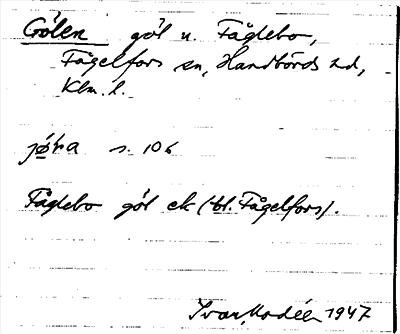 Gölen göl u. Fåglebo,
Fågelfors sn, Handbörds hd,
Klm. l.
s. 106
Fåglebo göl ek (bl. Fågelfors).
Ivar Modéer 1947